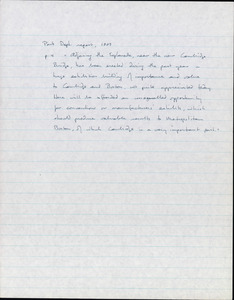 Park Dept. report, 1909
p. 6 - Adjoining the Esplanade, near the new Cambridge
Bridge, has been erected during the past year a
large exhibition building of importance and value
to Cambridge and Boston not quite appreciated today.
Here will be afforded an unequalled opportunity
for conventions or manufacturers' exhibits, which
should produce valuable results to Metropolitan
Boston, of which Cambridge is a very important part.